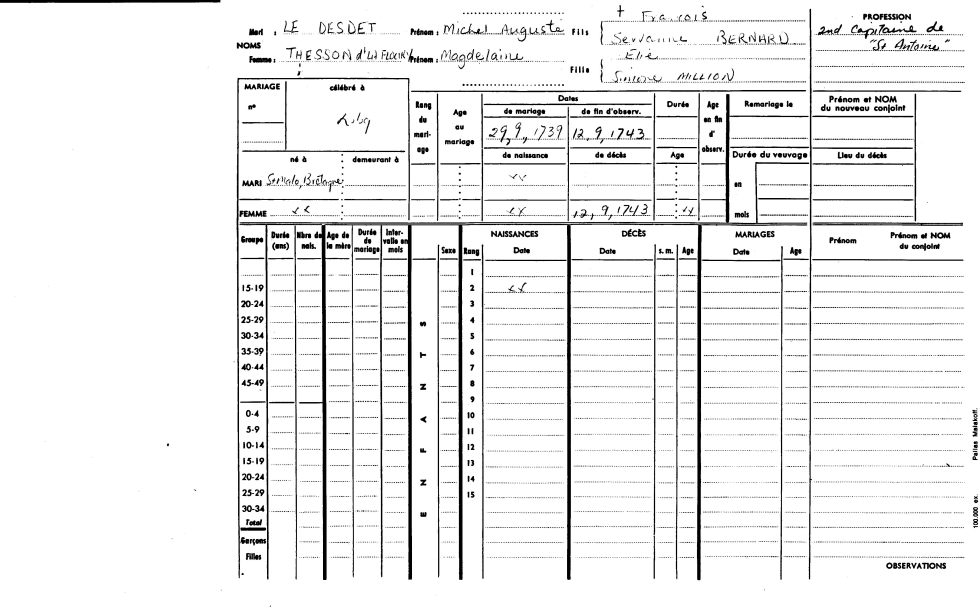 Mari : LE DESDET Prénom : Michel Auguste Fils { + François
Servanne BERNARD
NOMS
Femme : THESSON d'La FLOURY Prénom : Magdelaine Fille { Elie
Simone MILLION
PROFESSION
2nd Capitaine de
"St Antoine"
MARIAGE célébré à
n°
né à demeurant à
MARI St Malo, Bretagne
FEMME
Rang du mariage
Age au mariage
Dates
de mariage de fin d'observ.
29, 9, 1739 12, 9, 1743
de naissance de décès
12, 9, 1743
Durée
Age
Age en fin d'observ.
Remariage le
Durée du veuvage
en
mois
Prénom et NOM
du nouveau conjoint
Lieu du décès
Groupe Durée (ans) Nbre de nais. Age de la mère Durée de mariage Intervalle en mois
ENFANTS
Sexe Rang NAISSANCES Date DÉCÈS Date s. m. Age MARIAGES Date Age Prénom Prénom et NOM du conjoint
1
15-19 2
20-24 3
25-29 4
30-34 5
35-39 6
40-44 7
45-49 8
9
0-4 10
5-9 11
10-14 12
15-19 13
20-24 14
25-29 15
30-34
Total
Garçons
Filles
OBSERVATIONS
100.000 ex. Pallas Malakoff.